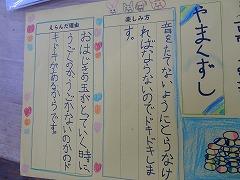 やまくずし
楽しみ方
音をたてないようにとらなけ
ればならないのでドキドキしま
す。
えらんだ理由
おはじきの玉がとっていく時に、
うごくのかうごかないのかのド
キドキがあるからです。